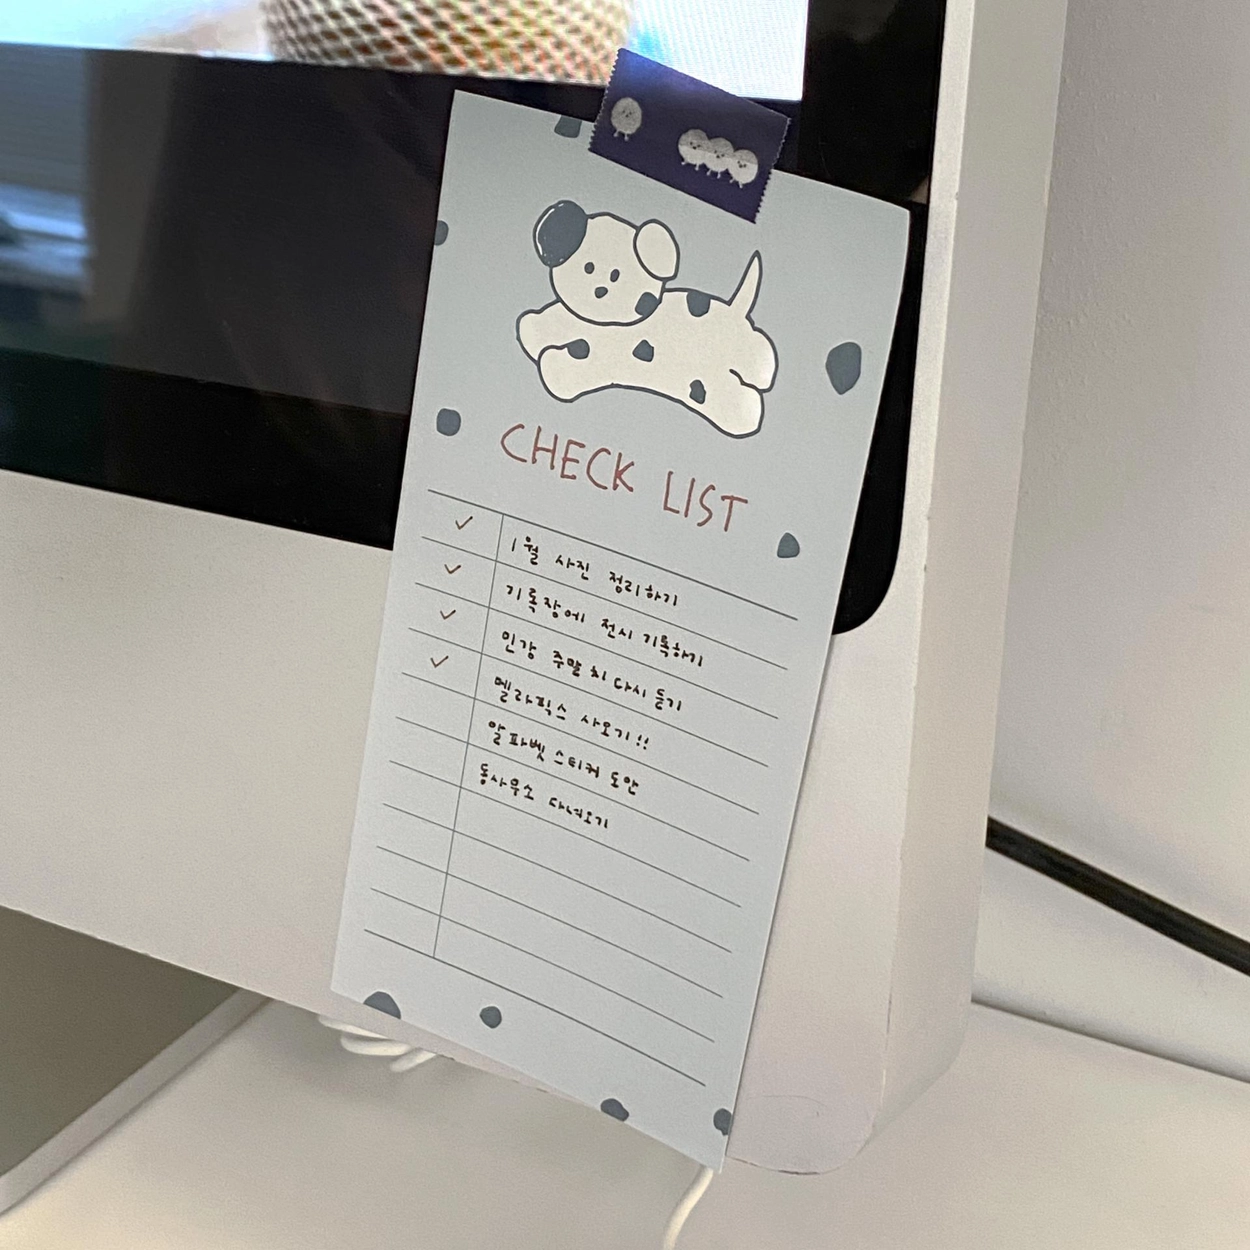 CHECK LIST
✓ 1월 사진 정리하기
✓ 기록장에 전시 기록하기
✓ 인강 주말치 다시 듣기
✓ 멜라픽스 사오기!!
알파벳 스티커 도안
동사무소 다녀오기